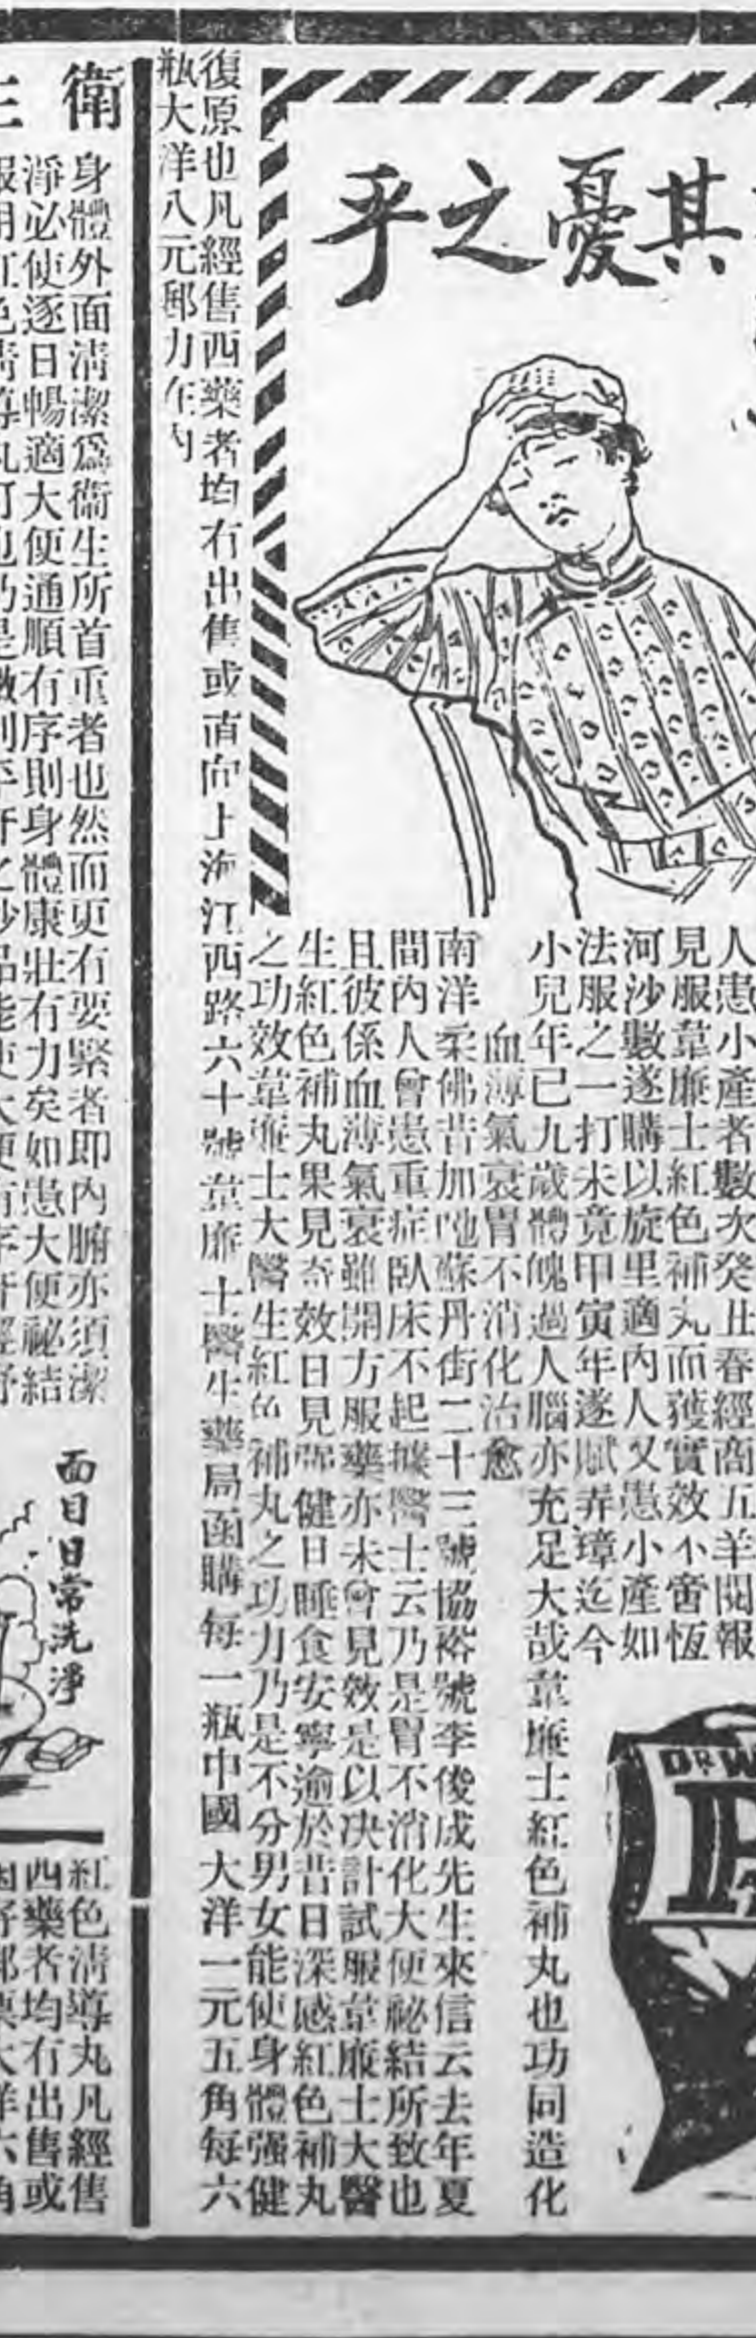 其憂之乎
人患小產者數次癸丑春經商五羊閱報
見服韋廉士紅色補丸而獲實效不啻恆
河沙數遂購以旋里適內人又患小產如
法服之一打未竟甲寅年遂賦弄璋迄今
小兒年已九歲體魄過人腦亦充足大哉韋廉士紅色補丸也功同造化
血薄氣衰胃不消化治愈
南洋柔佛昔加吔蘇丹街二十三號協裕號李俊成先生來信云去年夏
間內人曾患重症臥床不起據醫士云乃是胃不消化大便祕結所致也
且彼係血薄氣衰雖開方服藥亦未曾見效是以决計試服韋廉士大醫
生紅色補丸果見奇效日見强健日睡食安寧逾於昔日深感紅色補丸
之功效韋廉士大醫生紅色補丸之功力乃是不分男女能使身體强健
復原也凡經售西藥者均有出售或直向上海江西路六十號韋廉士醫生藥局函購每一瓶中國大洋一元五角每六
瓶大洋八元郵力在內
DR W
衛生
身體外面清潔爲衞生所首重者也然而更有要緊者即內腑亦須潔
淨必使逐日暢適大便通順有序則身體康壯有力矣如患大便祕結
面目日常洗淨
紅色清導丸凡經售
西藥者均有出售或